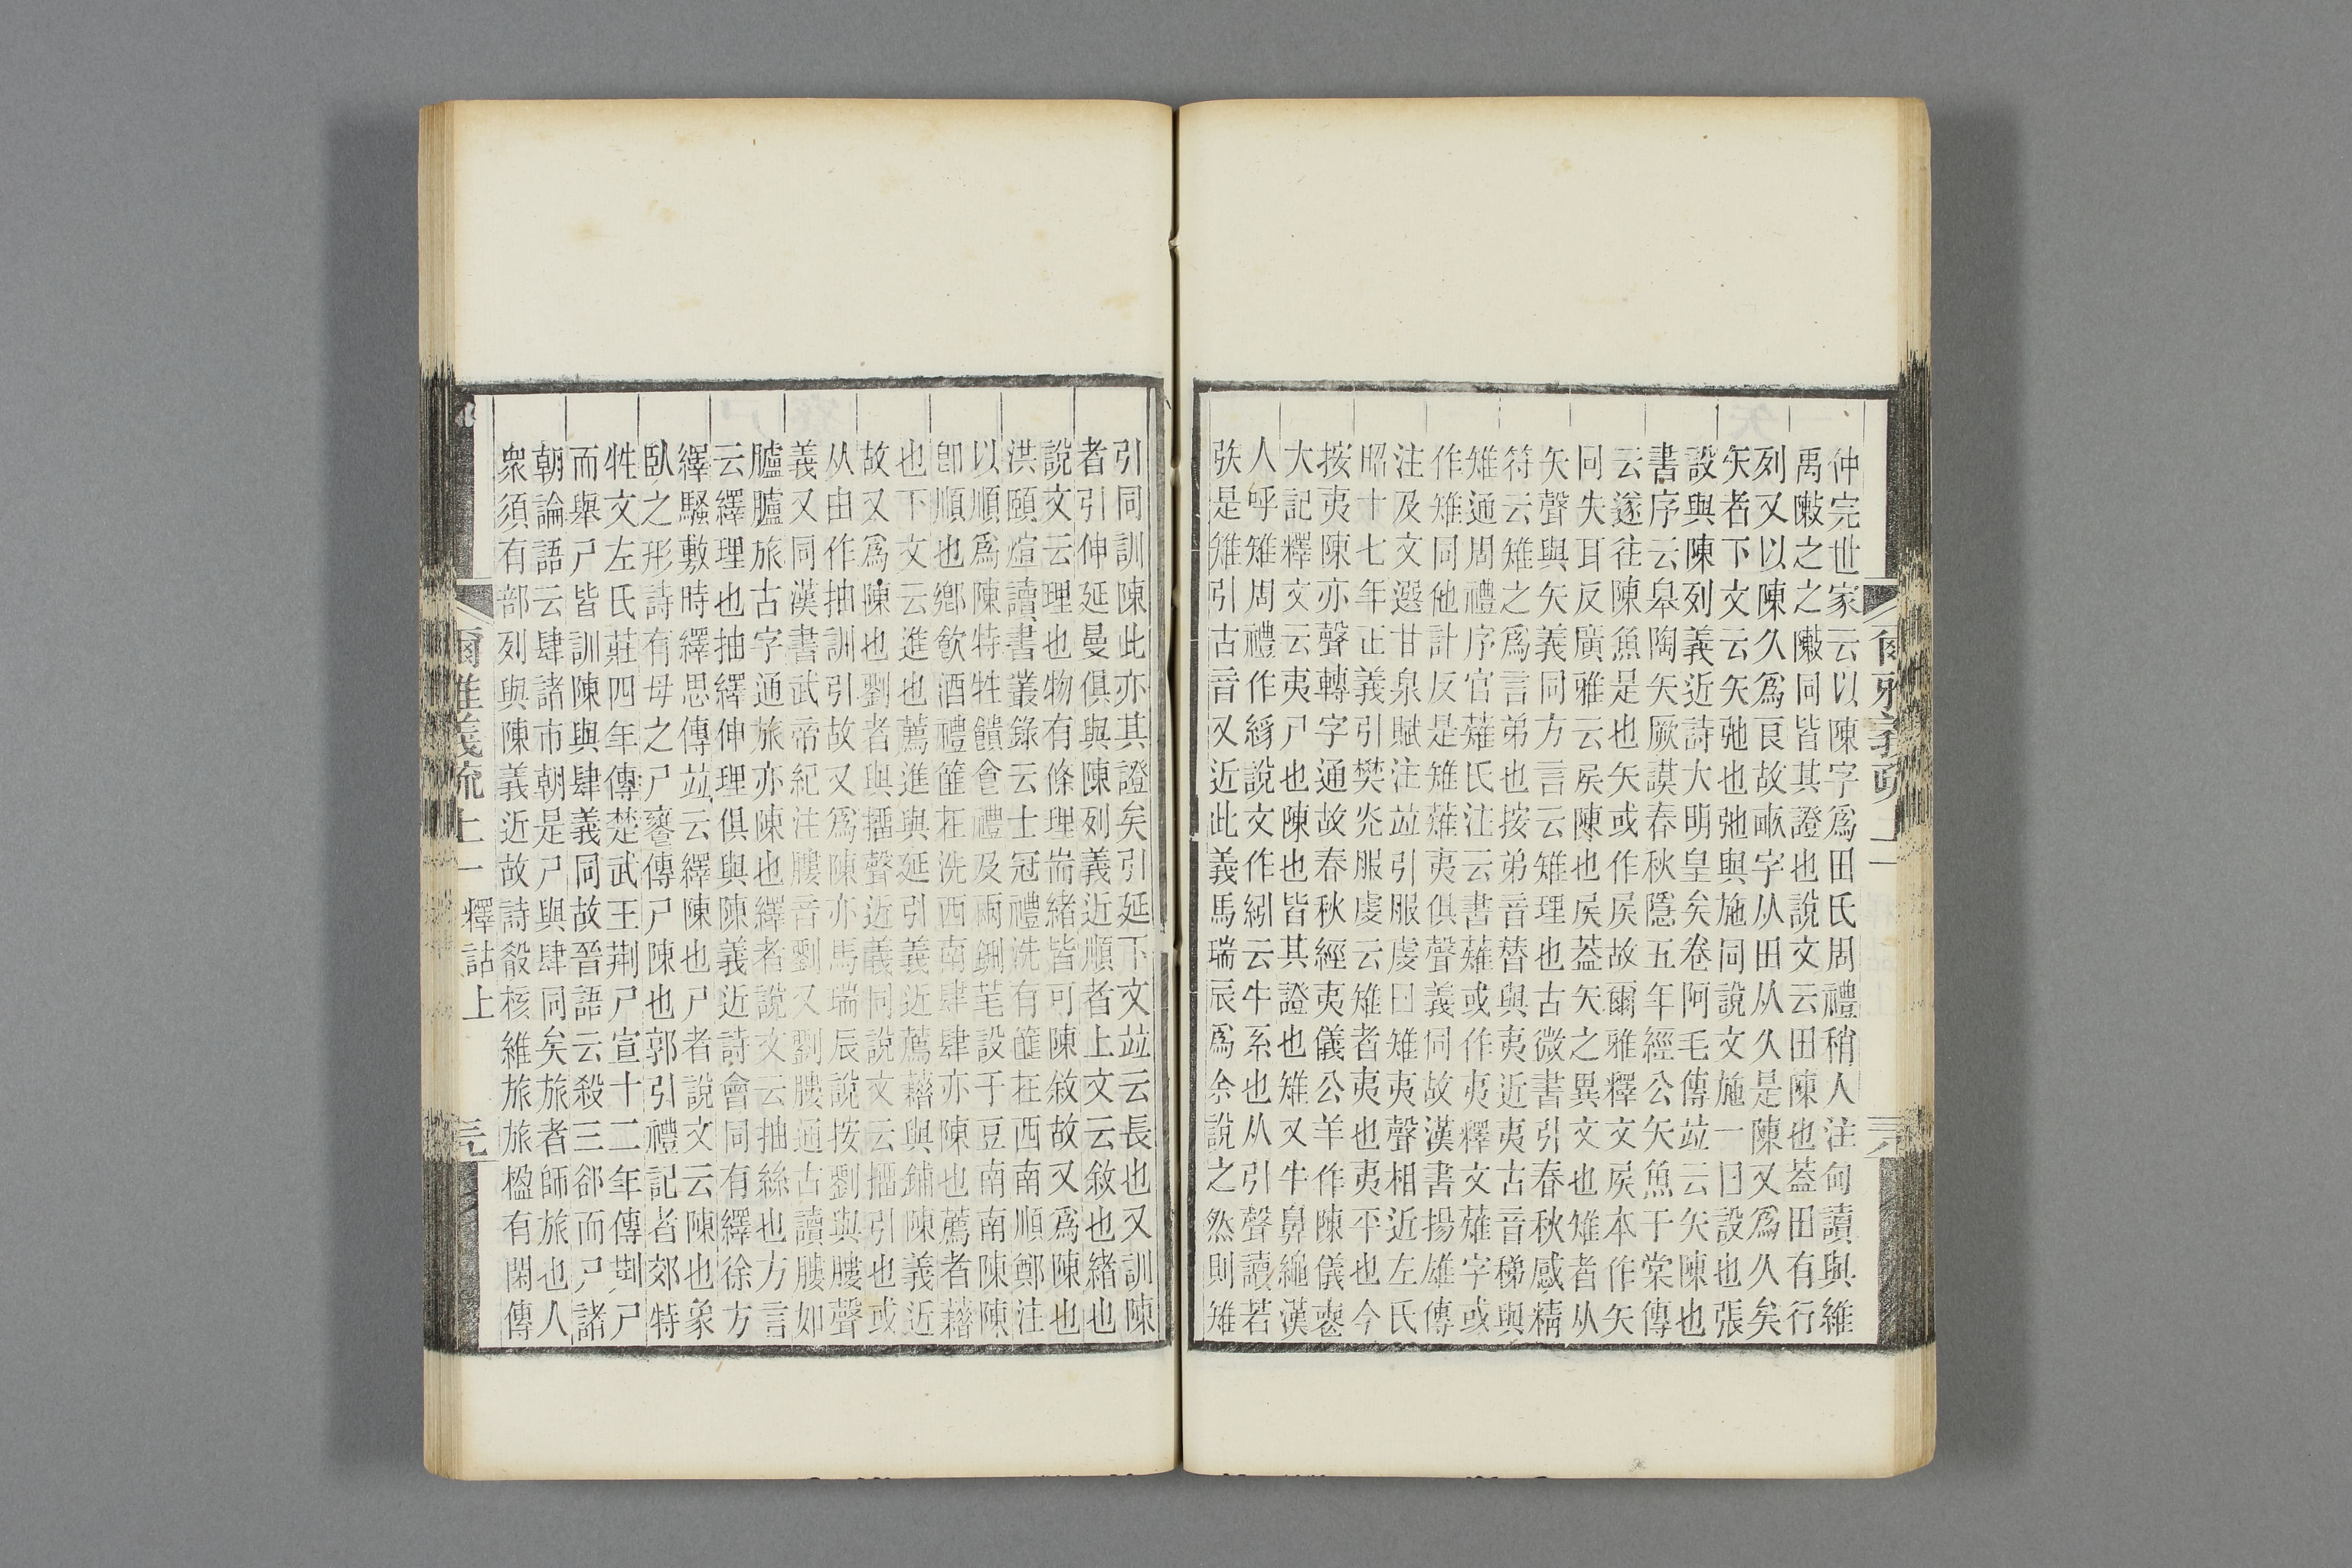 仲完世家云以陳字爲田氏周禮稍人注甸讀與維
禹敶之之敶同皆其證也說文云田陳也蓋田有行
列又以陳久爲㠯故畞字从田从久是陳又爲久矣
矢者下文云矢弛也弛與施同說文施一曰設也張
設與陳列義近詩大明皇矣卷阿毛傳竝云矢陳也
書序云皋陶矢厥謨春秋隱五年經公矢魚于棠傳
云遂往陳魚是也矢或作戾故爾雅釋文戾本作矢
同失耳反廣雅云戾陳也戾葢矢之異文也雉者从
矢聲與矢義同方言云雉理也古微書引春秋感精
符云雉之爲言弟也按弟音替與夷近夷古音稊與
雉通周禮序官薙氏注云書薙或作夷釋文薙字或
作雉同他計反是雉薙夷俱聲義同故漢書揚雄傳
注及文選甘泉賦注竝引服虔曰雉夷聲相近左氏
昭十七年正義引樊光服虔云雉者夷也夷平也今
按夷陳亦聲轉字通故春秋經夷儀公羊作陳儀喪
大記釋文云夷尸也陳也皆其證也雉又牛鼻繩漢
人呼雉周禮作絼說文作紖云牛系也从引聲讀若
矤是雉引古音又近此義馬瑞辰爲余說之然則雉
引同訓陳此亦其證矣引延下文竝云長也又訓陳
者引伸延曼俱與陳列義近順者上文云敘也緒也
說文云理也物有條理耑緒皆可陳敘故又爲陳也
洪頤煊讀書叢錄云士冠禮洗有篚在西南順鄭注
以順爲陳特牲饋食禮及兩鉶芼設于豆南南陳陳
卽順也鄉飮酒禮篚在洗西南肆肆亦陳也薦者藉
也下文云進也薦進與延引義近薦藉與鋪陳義近
故又爲陳也劉者與㨨聲近義同說文云㨨引也或
从由作抽訓引故又爲陳亦馬瑞辰說按劉與膢聲
義又同漢書武帝紀注膢音劉又劉膢通古讀膢如
臚臚旅古字通旅亦陳也繹者說文云抽絲也方言
云繹理也抽繹伸理俱與陳義近詩會同有繹徐方
繹騷敷時繹思傳竝云繹陳也尸者說文云陳也象
臥之形詩有母之尸饔傳尸陳也郭引禮記者郊特
牲文左氏莊四年傳楚武王荆尸宣十二年傳荆尸
而舉尸皆訓陳與肆義同故晉語云殺三郤而尸諸
朝論語云肆諸市朝是尸與肆同矣旅者師旅也人
衆須有部列與陳義近故詩殽核維旅旅楹有閑傳
爾雅義疏 上一 釋詁上